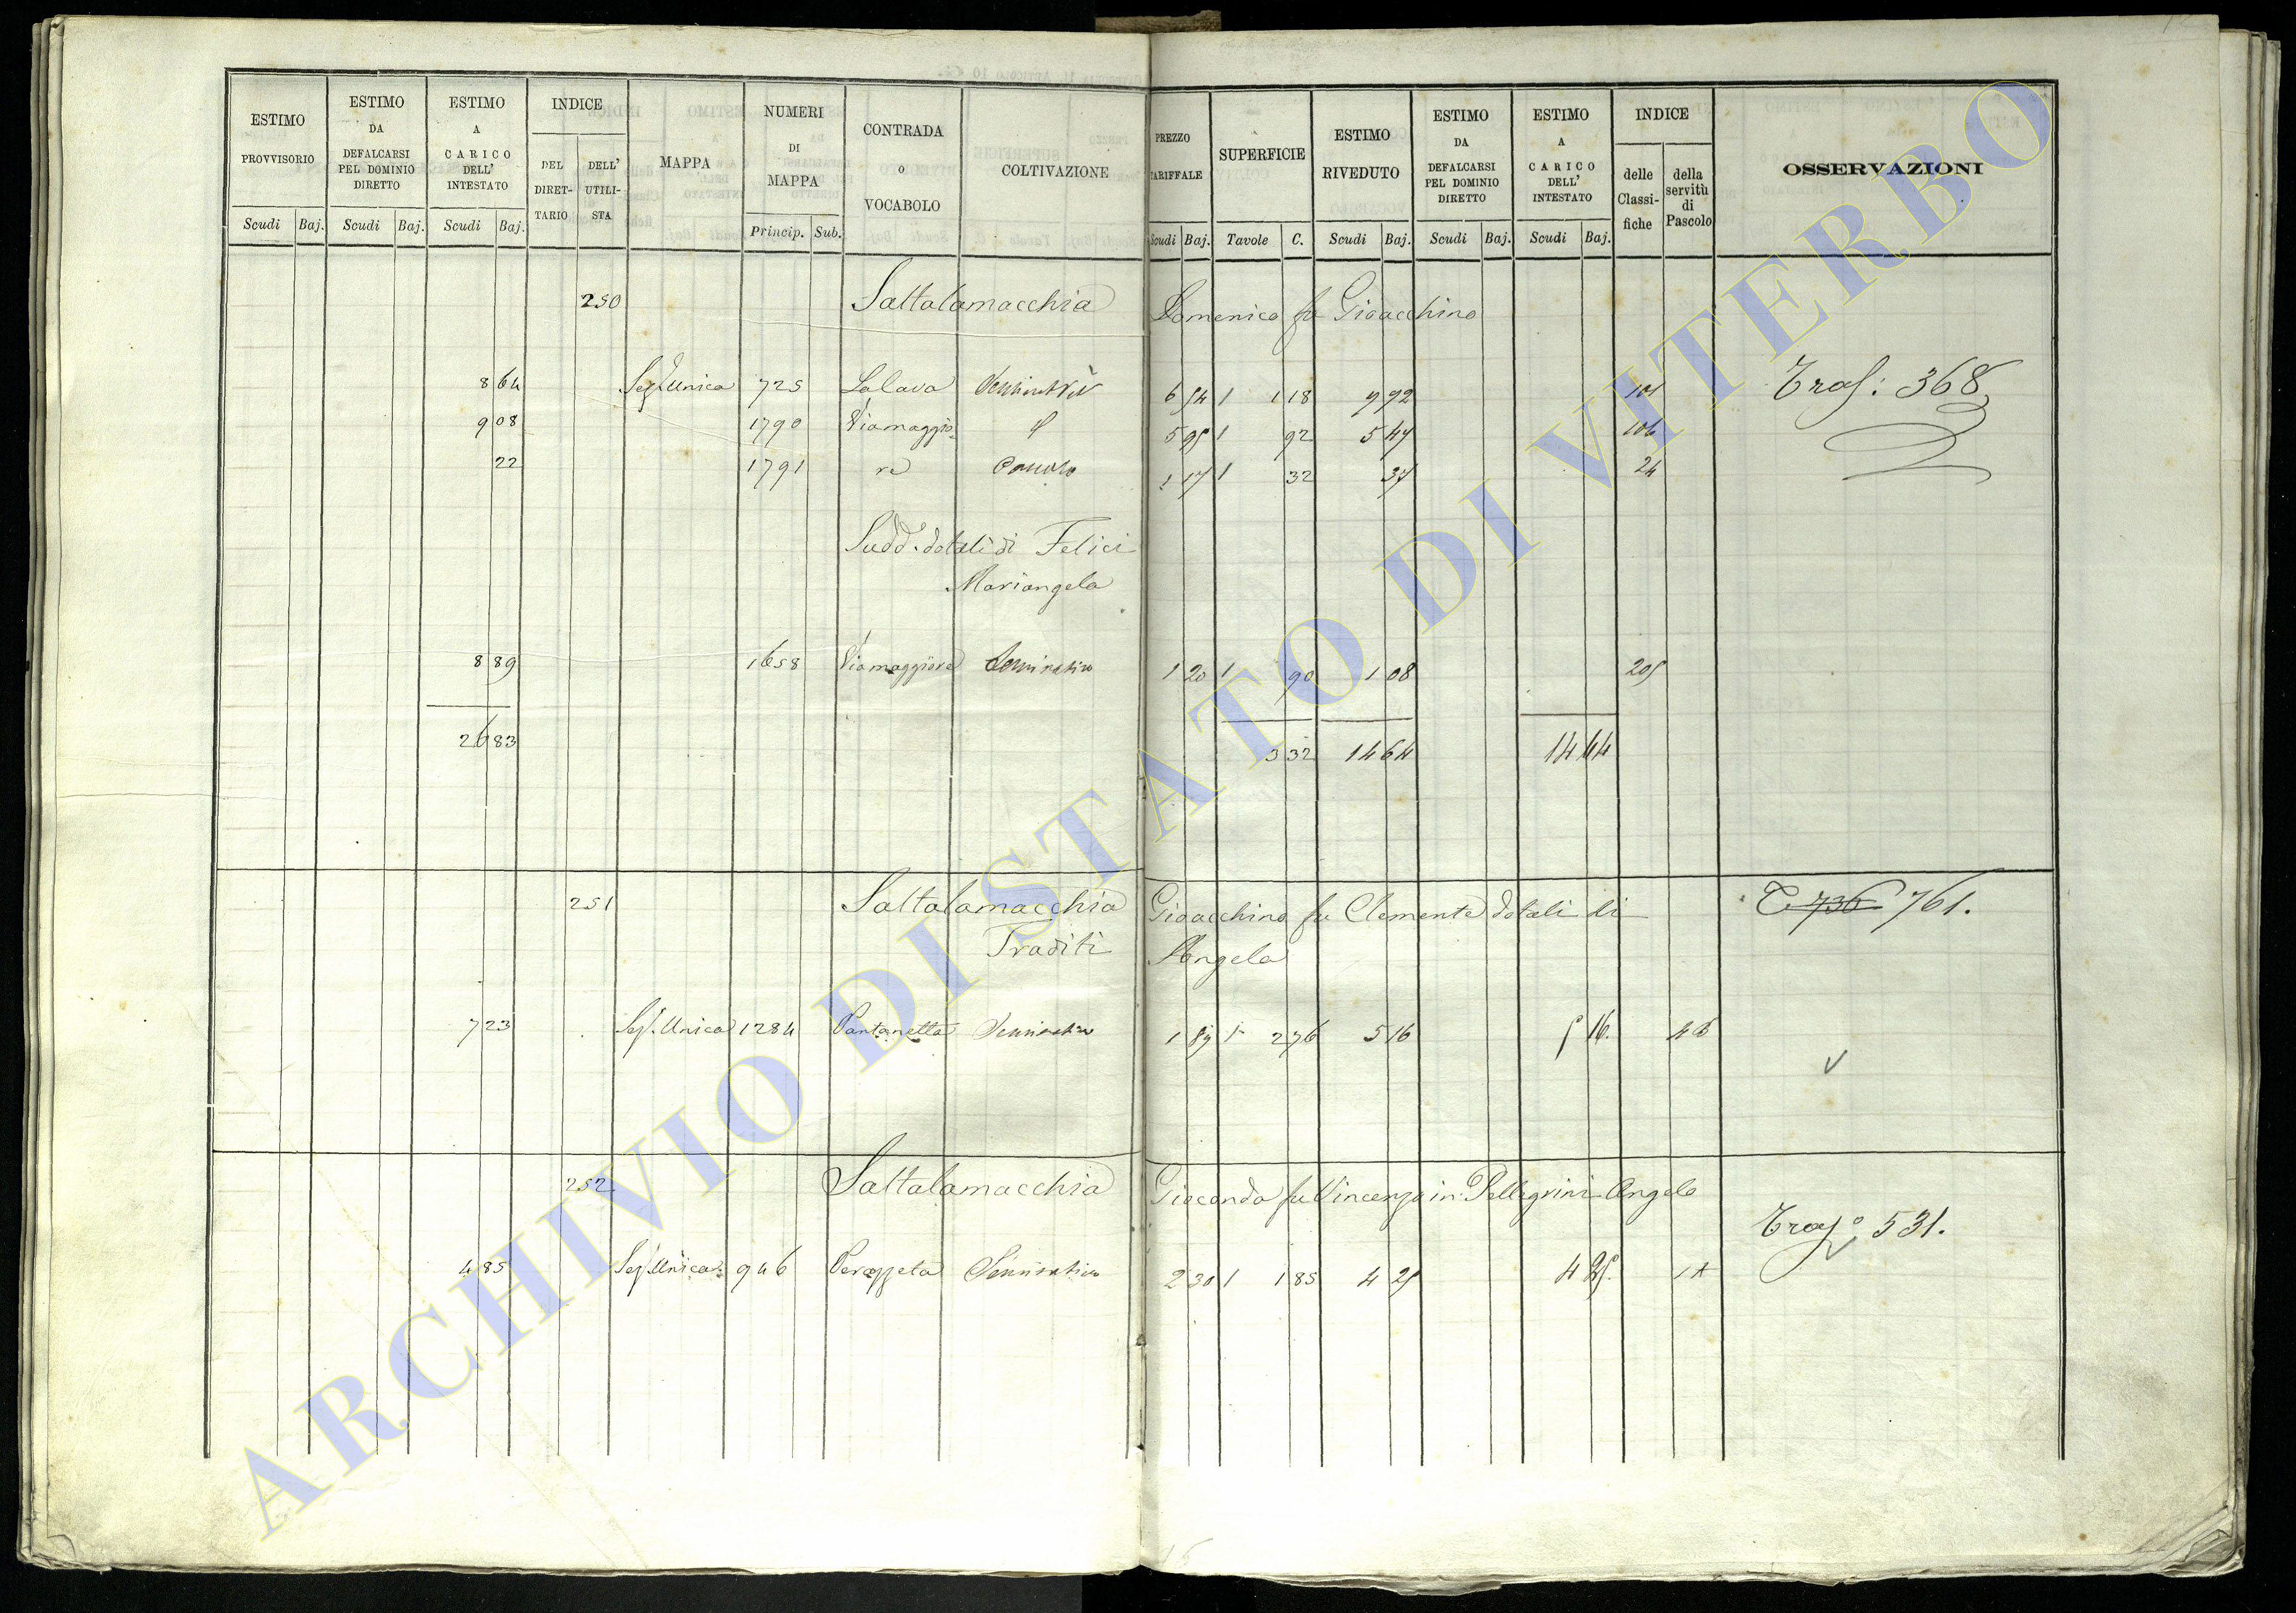 ESTIMO PROVVISORIO
ESTIMO DA DEFALCARSI PEL DOMINIO DIRETTO
ESTIMO A CARICO DELL' INTESTATO
INDICE
DEL DIRET-TARIO
DELL' UTILI-STA
MAPPA
NUMERI DI MAPPA
CONTRADA o VOCABOLO
COLTIVAZIONE
PREZZO TARIFFALE
SUPERFICIE
ESTIMO RIVEDUTO
ESTIMO DA DEFALCARSI PEL DOMINIO DIRETTO
ESTIMO A CARICO DELL' INTESTATO
INDICE
delle Classi-fiche
della servitù di Pascolo
OSSERVAZIONI
Scudi Baj. Scudi Baj. Scudi Baj. Princip. Sub. Scudi Baj. Tavole C. Scudi Baj. Scudi Baj. Scudi Baj.
250 Saltalamacchia Domenico fu Gioacchino
8 64 Sez. Unica 725 Lalava 6 54 1 1 18 7 92 101 Tras: 368
9 08 1790 Viamaggio- 5 95 1 92 5 47 106
22 1791 re 1 17 1 32 37 24
Sudd. dotali di Felici
Mariangela
8 89 1658 Viamaggiore Seminativo 1 20 1 90 1 08 205
26 83 3 32 14 64 14 44
251 Saltalamacchia Gioacchino fu Clemente dotali di T 736 761.
Traditi Angela
7 23 Sez. Unica 1284 Pantanetta Seminativo 1 87 1 2 76 5 16 5 16.
252 Saltalamacchia Gioconda fu Vincenzo in Pellegrini Angelo
Tras° 531.
4 85 Sez. Unica 946 Seminativo 2 30 1 1 85 4 25 4 25.
ARCHIVIO DI STATO DI VITERBO